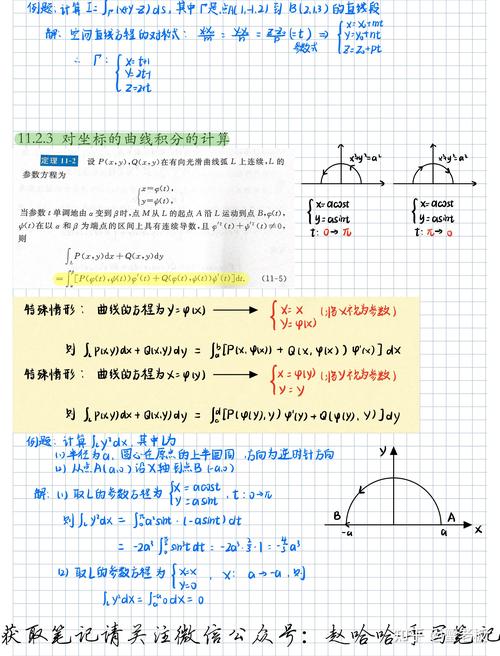 例题:计算 I=∫_Γ(x+y-z)ds,其中Γ是点A(1,-1,2)到B(2,1,3)的直线段
解:空间直线方程的对称式: (x-x₀)/m = (y-y₀)/n = (z-z₀)/p (=t) ⇒ 参数式 { x=x₀+mt
y=y₀+nt
z=z₀+pt
∴ Γ: { x=t+1
y=2t-1
z=2+t
11.2.3 对坐标的曲线积分的计算
定理 11-2 设 P(x,y),Q(x,y)在有向光滑曲线弧 L 上连续,L 的
参数方程为
{ x=φ(t),
y=ψ(t),
当参数 t 单调地由 α 变到 β时,点 M 从 L 的起点 A 沿 L 运动到点 B,φ(t),
ψ(t)在以 α 和 β 为端点的区间上具有连续导数,且 φ'²(t)+ψ'²(t)≠0,
则
∫_L P(x,y)dx+Q(x,y)dy
=∫_α^β[P(φ(t),ψ(t))φ'(t)+Q(φ(t),ψ(t))ψ'(t)]dt. (11-5)
x²+y²=a²
{ x=acost
y=asint
t: 0→π
x²+y²=a²
{ x=acost
y=asint
t: π→0
特殊情形: 曲线的方程为y=φ(x) → { x=x (将x视为参数)
y=φ(x)
则 ∫_L P(x,y)dx+Q(x,y)dy = ∫_a^b[P(x,φ(x))+Q(x,φ(x))φ'(x)]dx
特殊情形: 曲线的方程为x=φ(y) → { x=φ(y) (将y视为参数)
y=y
则 ∫_L P(x,y)dx+Q(x,y)dy = ∫_c^d[P(φ(y),y)φ'(y)+Q(φ(y),y)]dy
例题:计算∫_L y²dx,其中L为
(1)半径为a,圆心在原点的上半圆周,方向为逆时针方向
(2)从点A(a,0)沿x轴到点B(-a,0)
解:(1)取L的参数方程为 { x=acost
y=asint , t:0→π
则∫_L y²dx = ∫_0^π a²sin²t·(-asint)dt
= -2a³∫_0^{π/2} sin³t dt = -2a³·2/3·1 = -4/3a³
(2)取L的参数方程为 { x=x
y=0 , x: a→-a,则
∫_L y²dx = ∫_a^{-a} 0dx = 0
y
B
A
x
-a
a
获取笔记请关注微信公众号:赵哈哈手写笔记